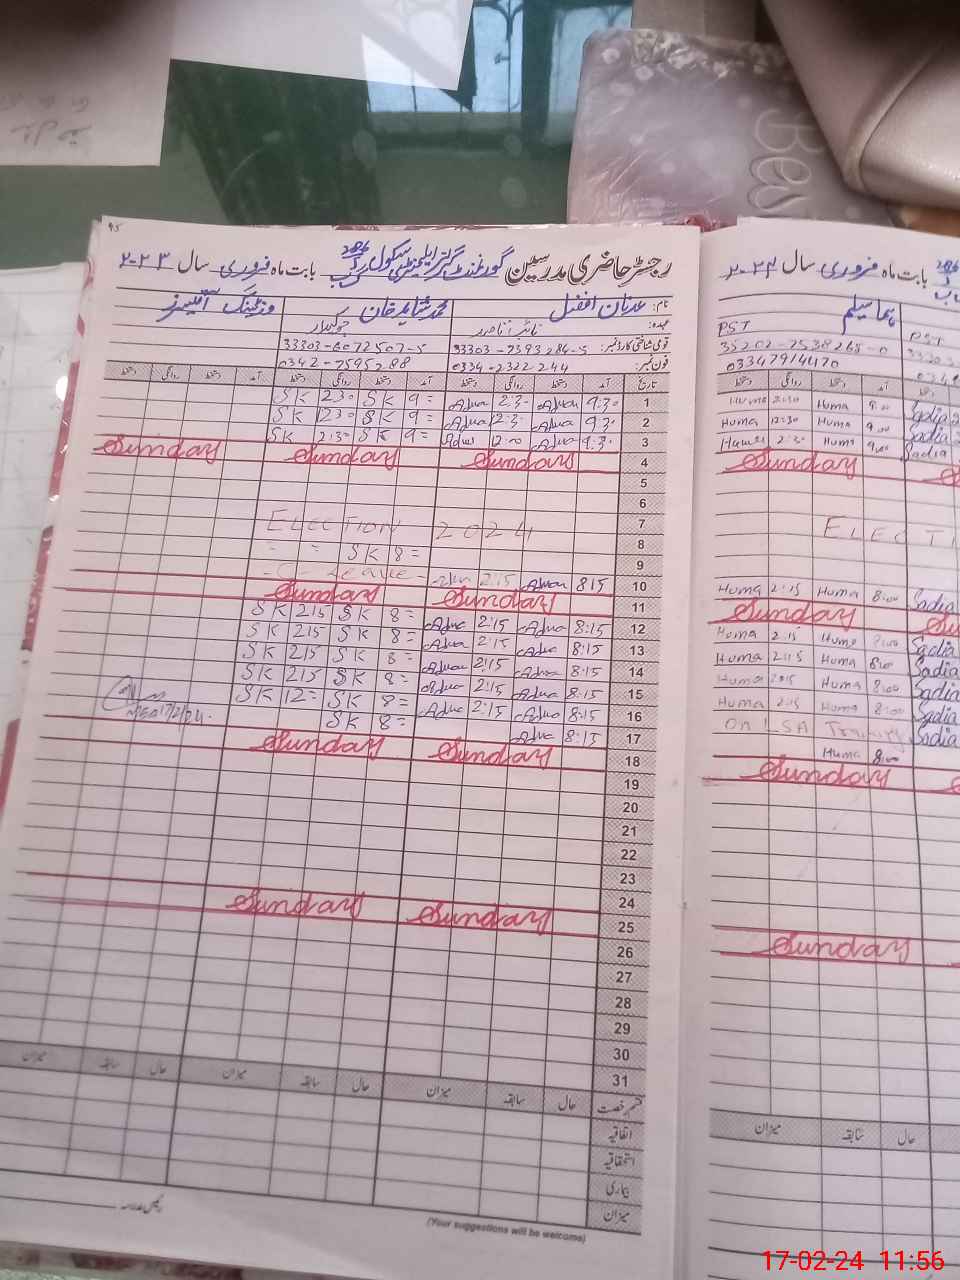 95
رجسٹر حاضری مدرسین گورنمنٹ گرلز ایلیمنٹری سکول بابت ماہ فروری سال ۲۰۲۳
نام: عدنان افضل محمد شاہد خان وزٹنگ آفیسرز
عہدہ: چوکیدار
قومی شناختی کارڈ نمبر: 33303-7393284-5 33303-6072507-5
فون نمبر: 0334-2322244 0342-7595288
تاریخ آمد دستخط روانگی دستخط آمد دستخط روانگی دستخط آمد دستخط روانگی دستخط
SK 2:30 SK 9= 2:30 9:30 1
SK 12:30 SK 9= 12:30 9:30 2
SK 2:30 SK 9= 12:00 9:30 3
Sunday Sunday Sunday 4
5
6
ELECTION 2024 7
SK 8= 8
9
Leave 2:15 8:15 10
Sunday Sunday 11
SK 215 SK 8= 2:15 8:15 12
SK 215 SK 8= 2:15 8:15 13
SK 215 SK 8= 2:15 8:15 14
SK 215 SK 8= 2:15 8:15 15
SK 12= SK 8= 2:15 8:15 16
SK 8= 8:15 17
17/2/24
Sunday Sunday 18
19
20
21
22
23
24
Sunday Sunday 25
26
27
28
29
30
31
قسم رخصت حال سابقہ میزان حال سابقہ میزان حال سابقہ میزان
اتفاقیہ
استحقاقیہ
بیماری
میزان
رئیس مدرسہ
(Your suggestions will be welcome)
بابت ماہ فروری سال ۲۰۲۴
ہما سلیم
PST PST
35202-7538265-0
03347914470
آمد دستخط روانگی دستخط
Huma 2:30 Huma 9:00 Sadia
Huma 12:30 Huma 9:00 Sadia
Huma 2:30 Huma 9:00 Sadia
Sunday
ELECTI
Huma 2:15 Huma 8:00 Sadia
Sunday
Huma 2:15 Huma 8:00 Sadia
Huma 2:15 Huma 8:00 Sadia
Huma 2:15 Huma 8:00 Sadia
Huma 2:15 Huma 8:00 Sadia
On LSA Training Sadia
Huma 8:00
Sunday
Sunday
حال سابقہ میزان
Bes
17-02-24 11:56